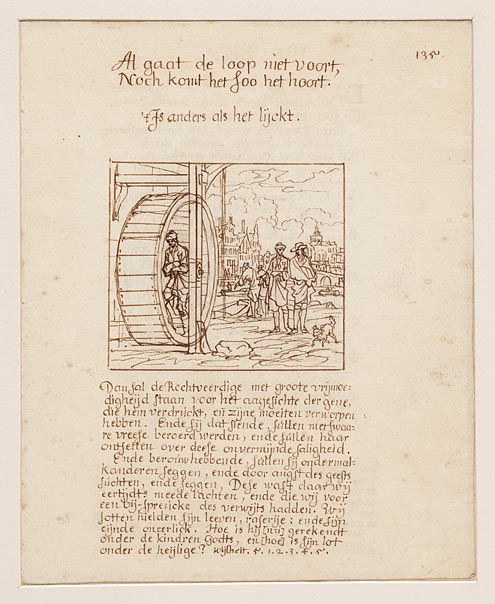 135.
Al gaat de loop niet voort,
Noch komt het soo het hoort.
't Is anders als het lijckt.
Dan sal de Rechtveerdige met groote vrijmoe-
digheijd staan voor het aagesichte der gene,
die hem verdruckt, en zijne moeiten verworpen
hebben. Ende sij dat siende, sullen met swaa-
re vreese beroerd werden, ende sullen haar
ontsetten over deese onvermijnde saligheid.
Ende berouw hebbende, sullen sij onder mal-
kanderen seggen, ende door angst des geests
suchten, ende seggen, Dese wast daar wij
eertijdts meede lachten, ende die wij voor
een bij-spreucke des verwijts hadden. Wij
sotten hielden sijn leeven, raserije: ende sijn
eijnde oneerlick. Hoe is hij nu gerekendt
onder de kindren Godts, en hoe is sijn lot
onder de heijlige? wijsheit. 5. 1. 2. 3. 4. 5.